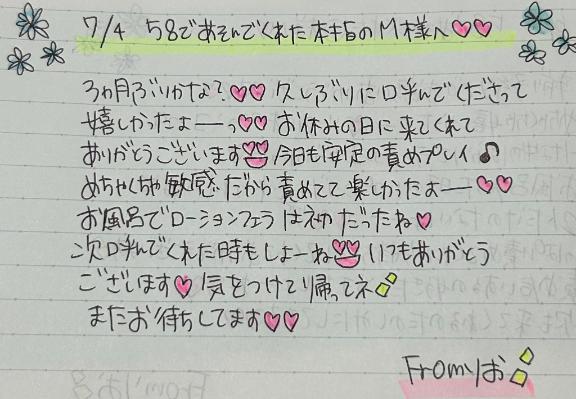 7/4 58であそんでくれた本指のM様へ♡♡
3ヵ月ぶりかな?♡♡ 久しぶりに呼んでくださって
嬉しかったよーーっ♡♡ お休みの日に来てくれて
ありがとうございます 今日も安定の責めプレイ♪
めちゃくちゃ敏感だから責めてて楽しかったよー♡♡
お風呂でローションフェラは初だったね♡
次呼んでくれた時もしよーね いつもありがとう
ございます♡ 気をつけて帰ってネ
またお待ちしてます♡♡
Fromりお